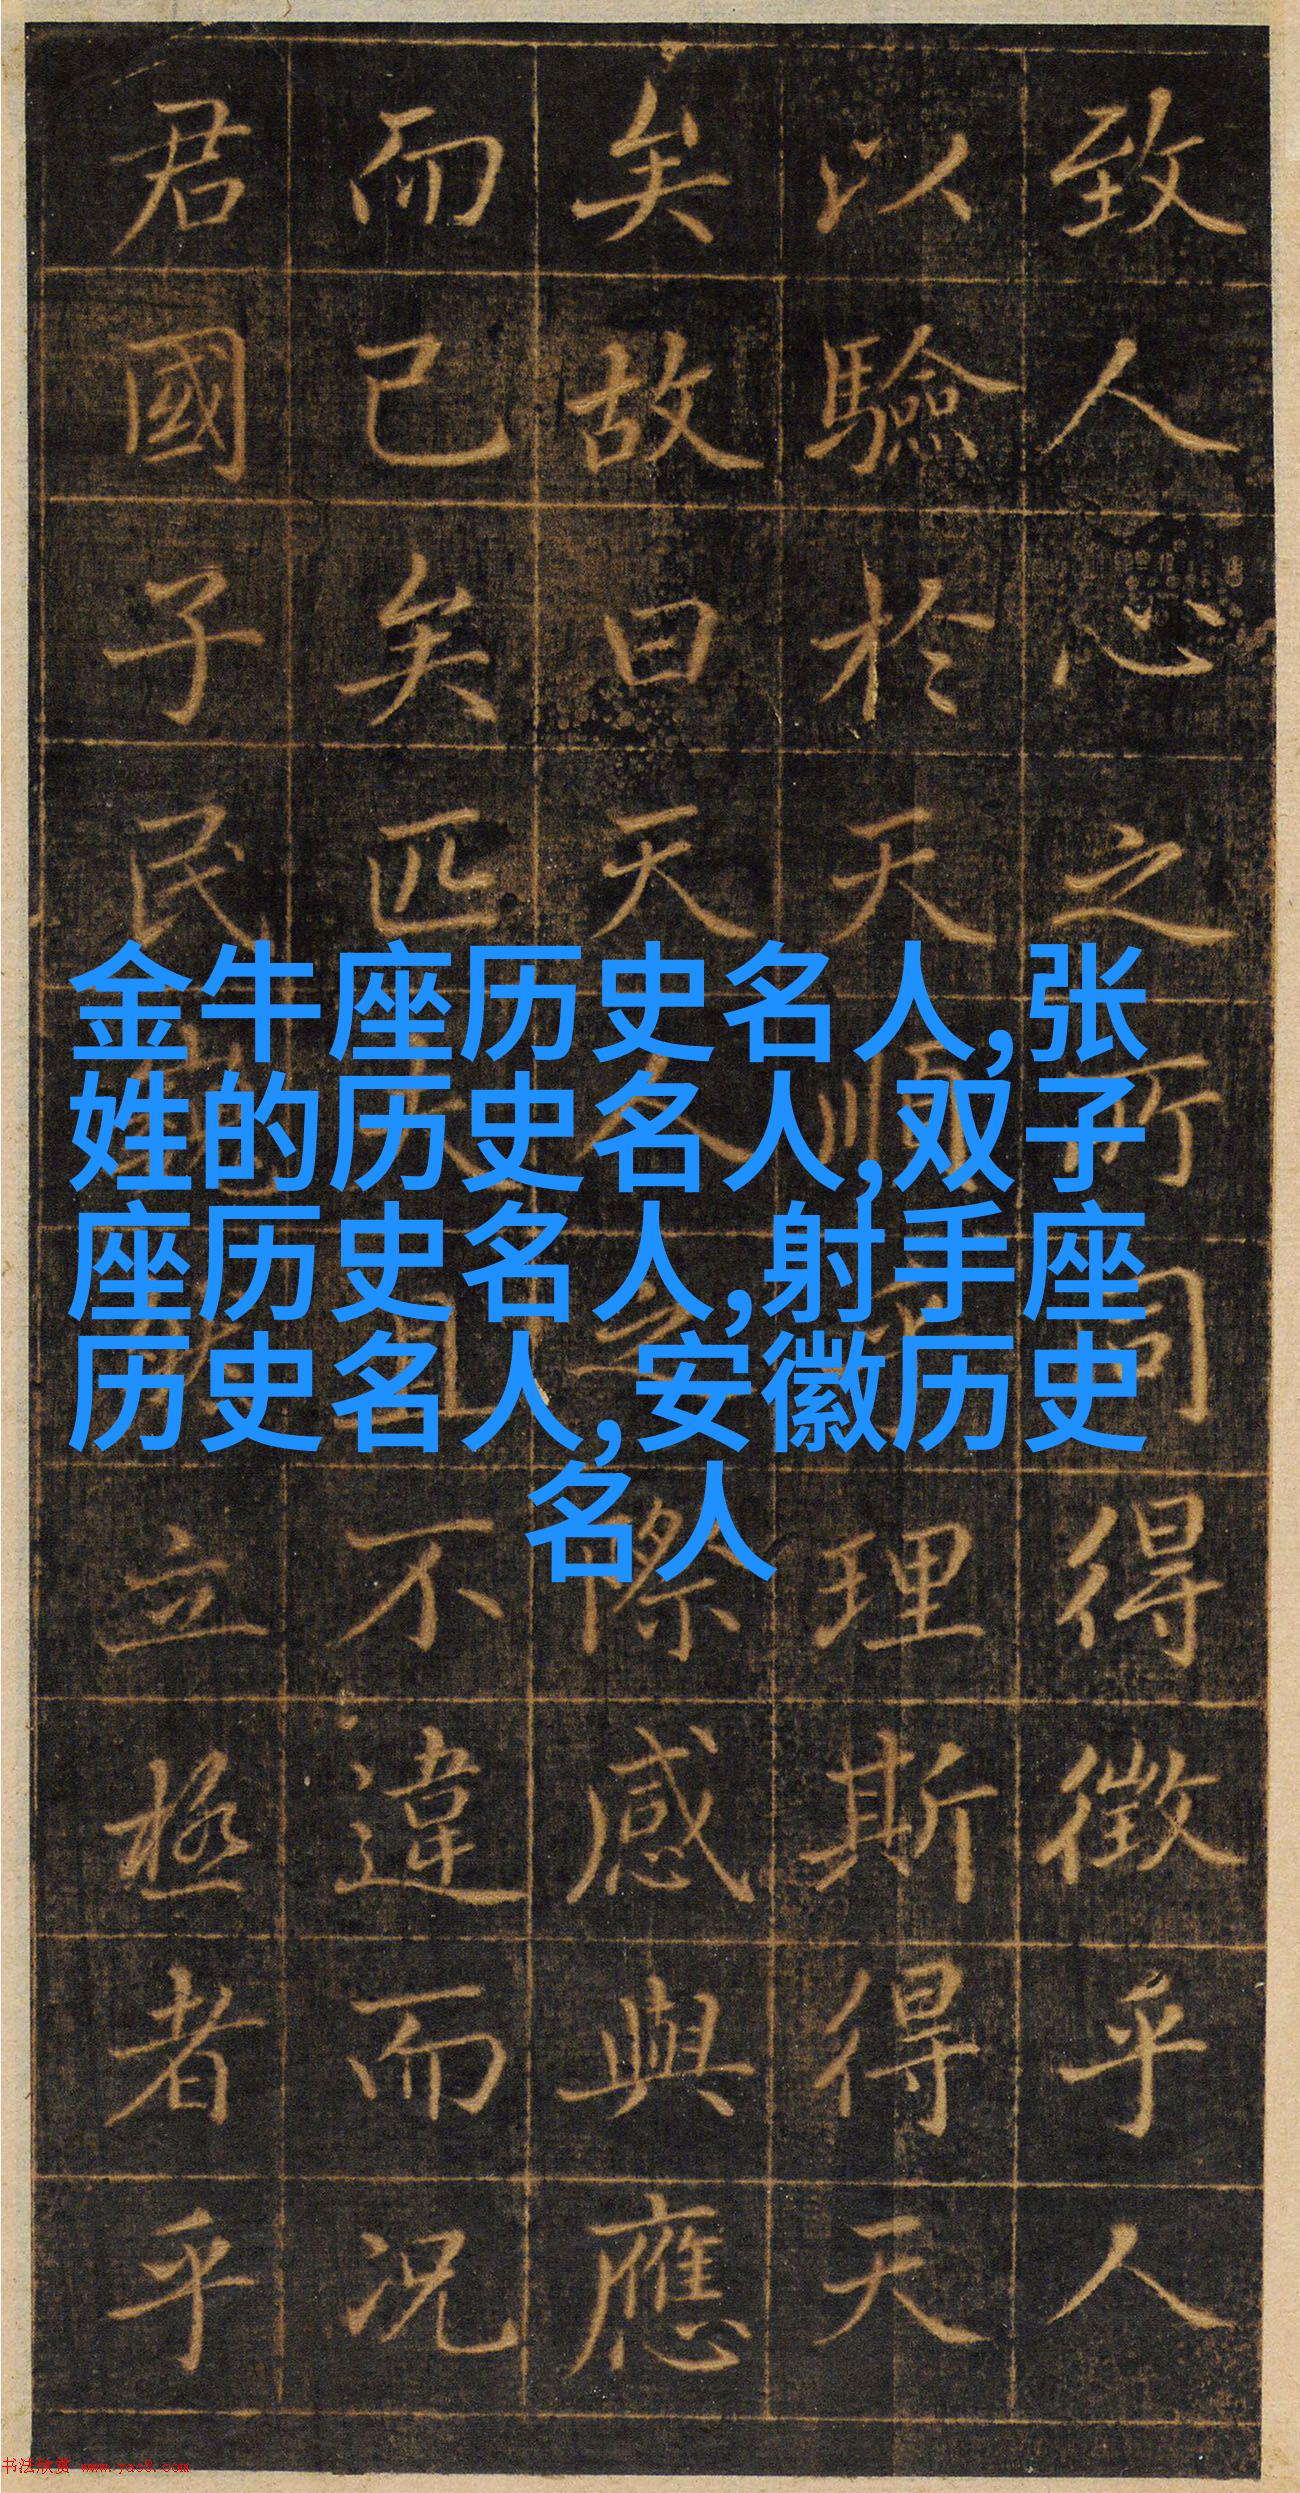 致人心之所同得徵乎人
以驗於天順乎理斯得天
矣故曰天人之際感與應
而已矣匹夫且不違而况
君國子民立極者乎
金牛座历史名人,张
姓的历史名人,双子
座历史名人,射手座
历史名人,安徽历史
名人
书法欣赏 www.yac8.com